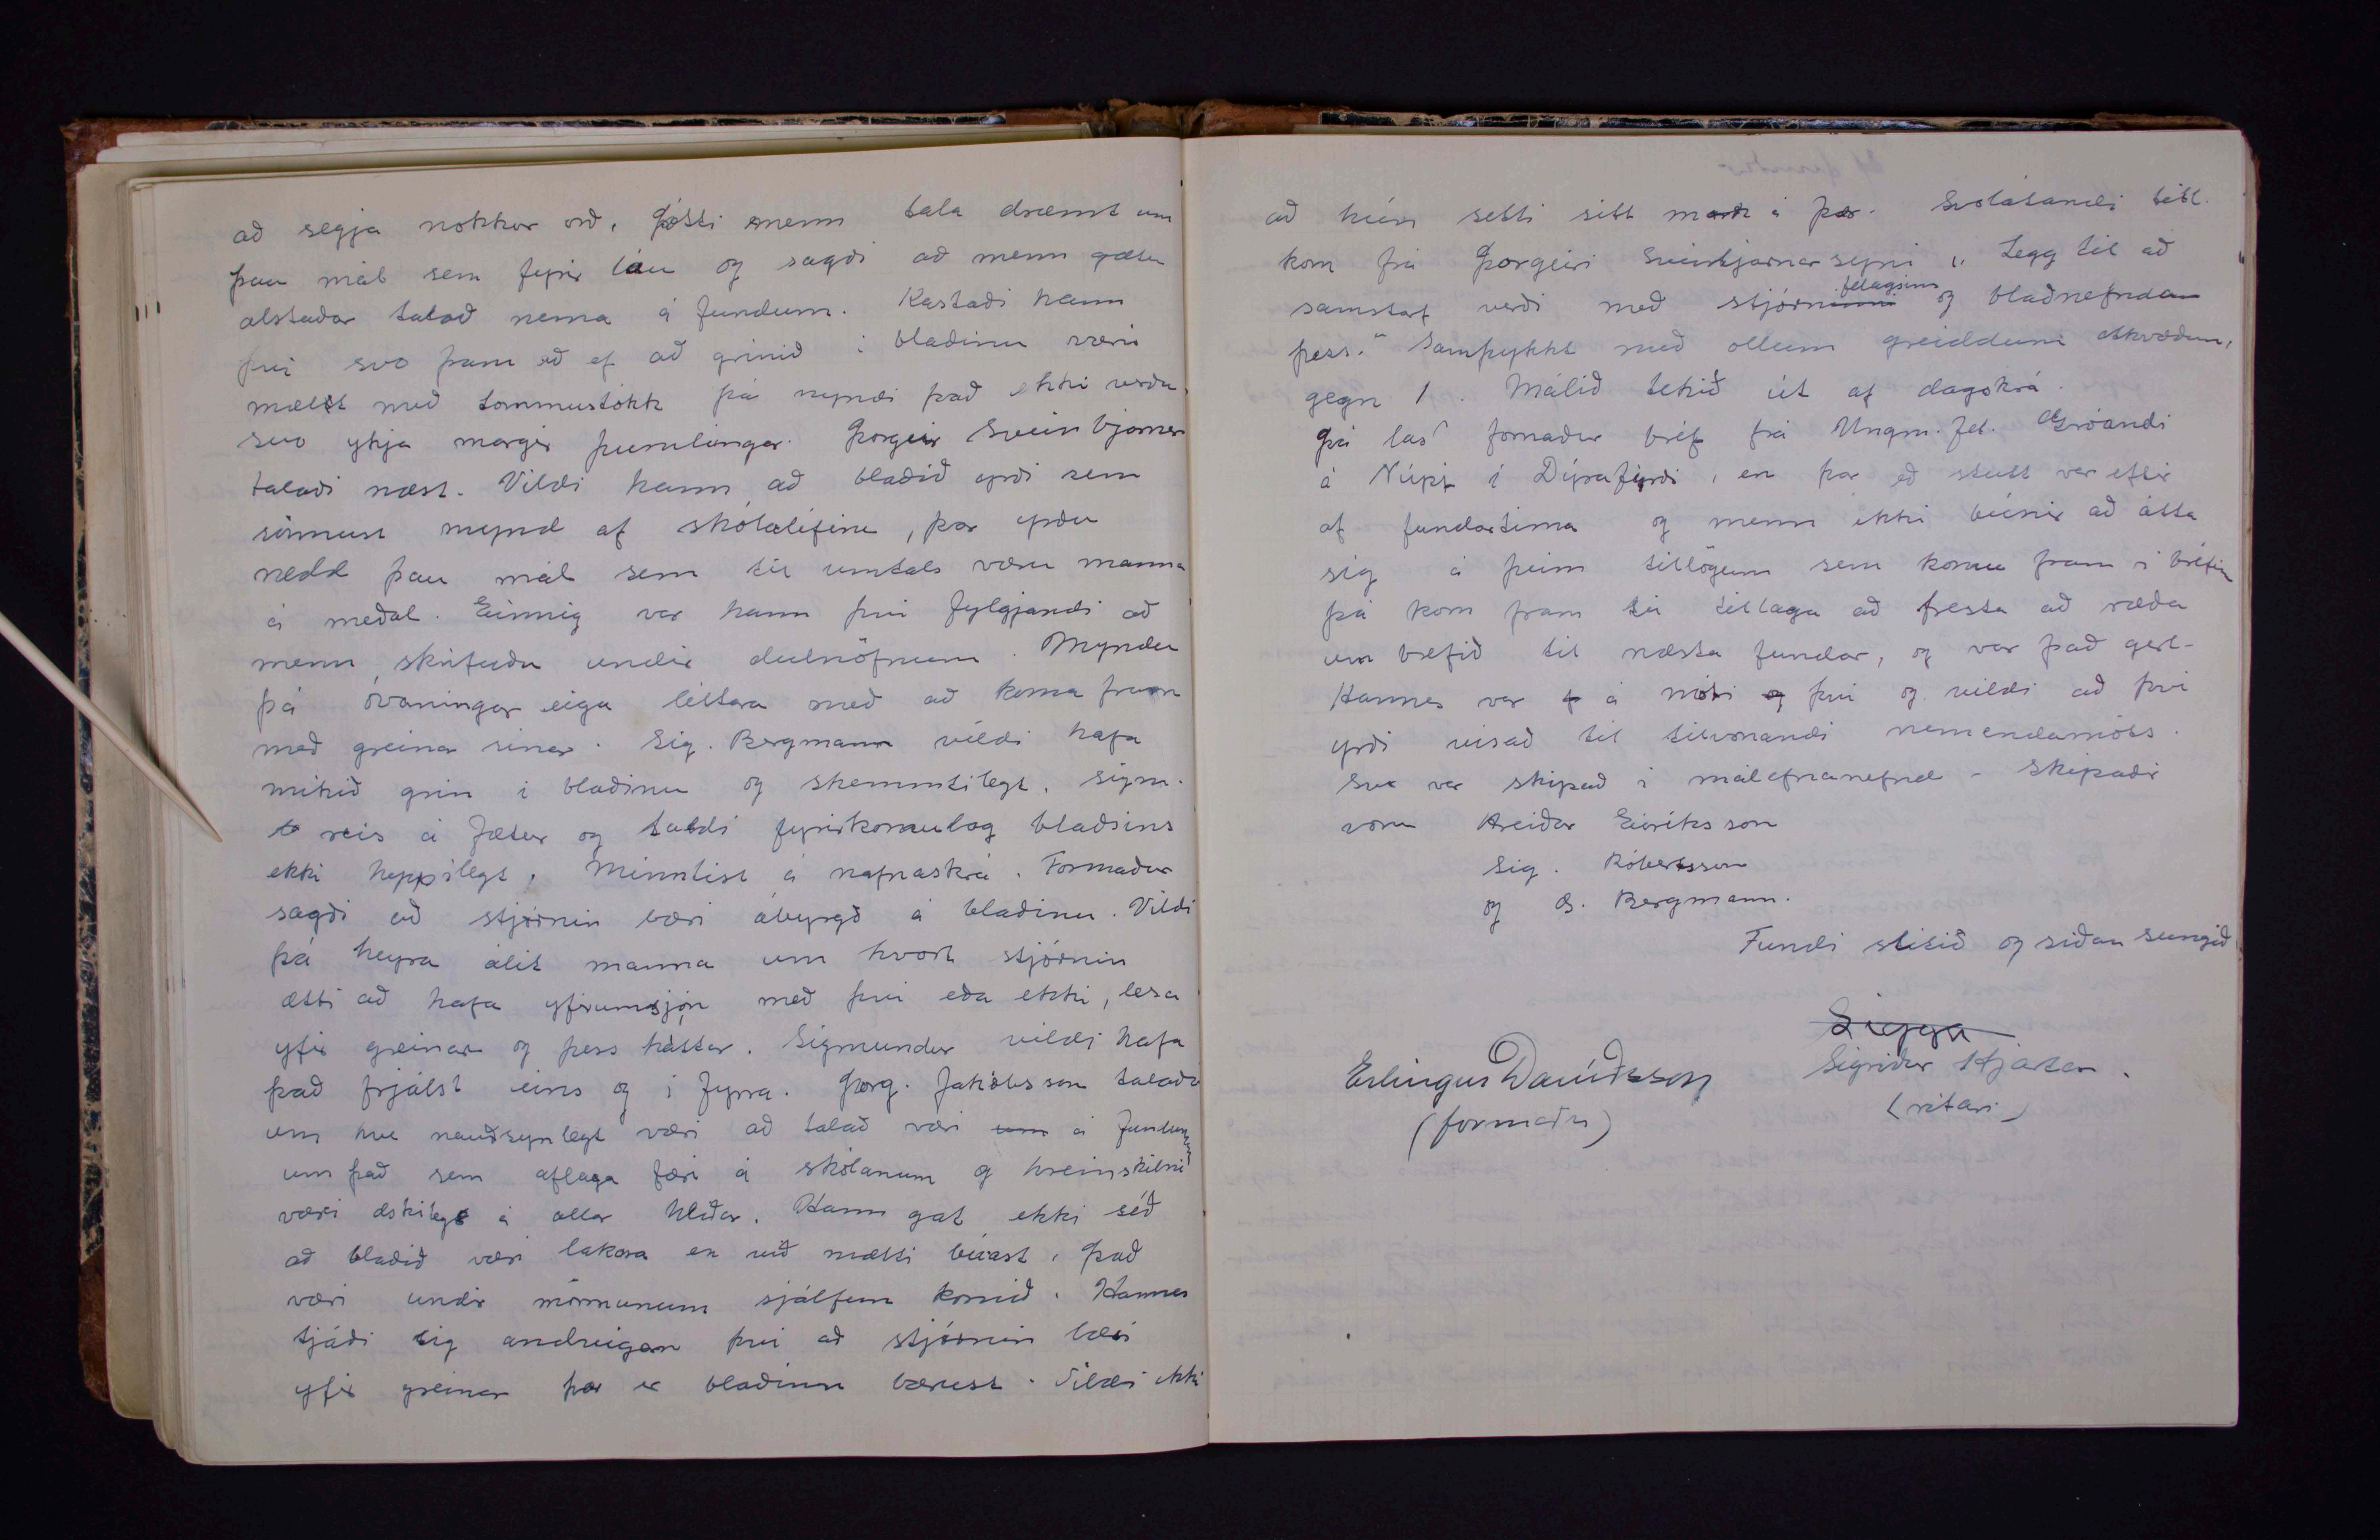 að segja nokkur orð. Þótti menn tala dræmt um
þau mál sem fyrir láu og sagði að menn gætu
alstaðar talað nema á fundum. Kastaði hann
því svo fram að ef að grínið í blaðinu væri
mælt með tommustokk þá myndi það ekki verða
svo ykja margir þumlungar. Þorgeir Sveinbjarnar
talaði næst. Vildi hann að blaðið yrði sem
sönnust mynd af skólalífinu, þar yrðu
rædd þau mál sem til umtals væru manna
á meðal. Einnig var hann því fylgjandi að
menn skrifuðu undir dulnöfnum. Myndu
þá óvaningar eiga léttara með að koma fram
með greinar sínar. Sig. Bergmann vildi hafa
mikið grín í blaðinu og skemmtilegt. Sigm.
reis á fætur og taldi fyrirkomulag blaðsins
ekki heppilegt. Minntist á nafnaskrá. Formaður
sagði að stjórnin bæri ábyrgð á blaðinu. Vildi
þá heyra álit manna um hvort stjórnin
ætti að hafa yfirumsjón með því eða ekki, lesa
yfir greinar og þess háttar. Sigmundur vildi hafa
það frjálst eins og í fyrra. Þorg. Jakobsson talaði
um hve nauðsynlegt væri að talað væri um á fundunum
um það sem aflaga færi á skólanum og hreinskilni
væri æskileg á allar hliðar. Hann gat ekki séð
að blaðið væri lakara en við mætti búast. Það
væri undir mönnunum sjálfum komið. Hannes
tjáði sig andvígan því að stjórnin læsi
yfir greinar þær er blaðinu bærust. Vildi ekki
að hún setti sitt mark á þær. Svolátandi till.
kom frá Þorgeiri Sveinbjarnarsyni „Legg til að
samstarf verði með stjórninni félagsins og blaðnefndar
þess." Samþykkt með öllum greiddum atkvæðum,
gegn 1. Málið tekið út af dagskrá.
Þá las formaður bréf frá Ungm.fél. Gróandi
á Núpi í Dýrafirði, en þar eð stutt var eftir
af fundartíma og menn ekki búnir að átta
sig á þeim tillögum sem komu fram í bréfinu
þá kom fram til tillaga að fresta að ræða
um bréfið til næsta fundar, og var það gert-
Hannes var á móti því og vildi að því
yrði vísað til tilvonandi nemendamóts.
Svo var skipað í málefnanefnd - Skipaðir
voru Hreiðar Eiríksson
Sig. Róbertsson
og S. Bergmann.
Fundi slitið og síðan sungið
Sigga
Erlingur Davíðsson
(formaður)
Sigríður Hjartar.
(ritari)